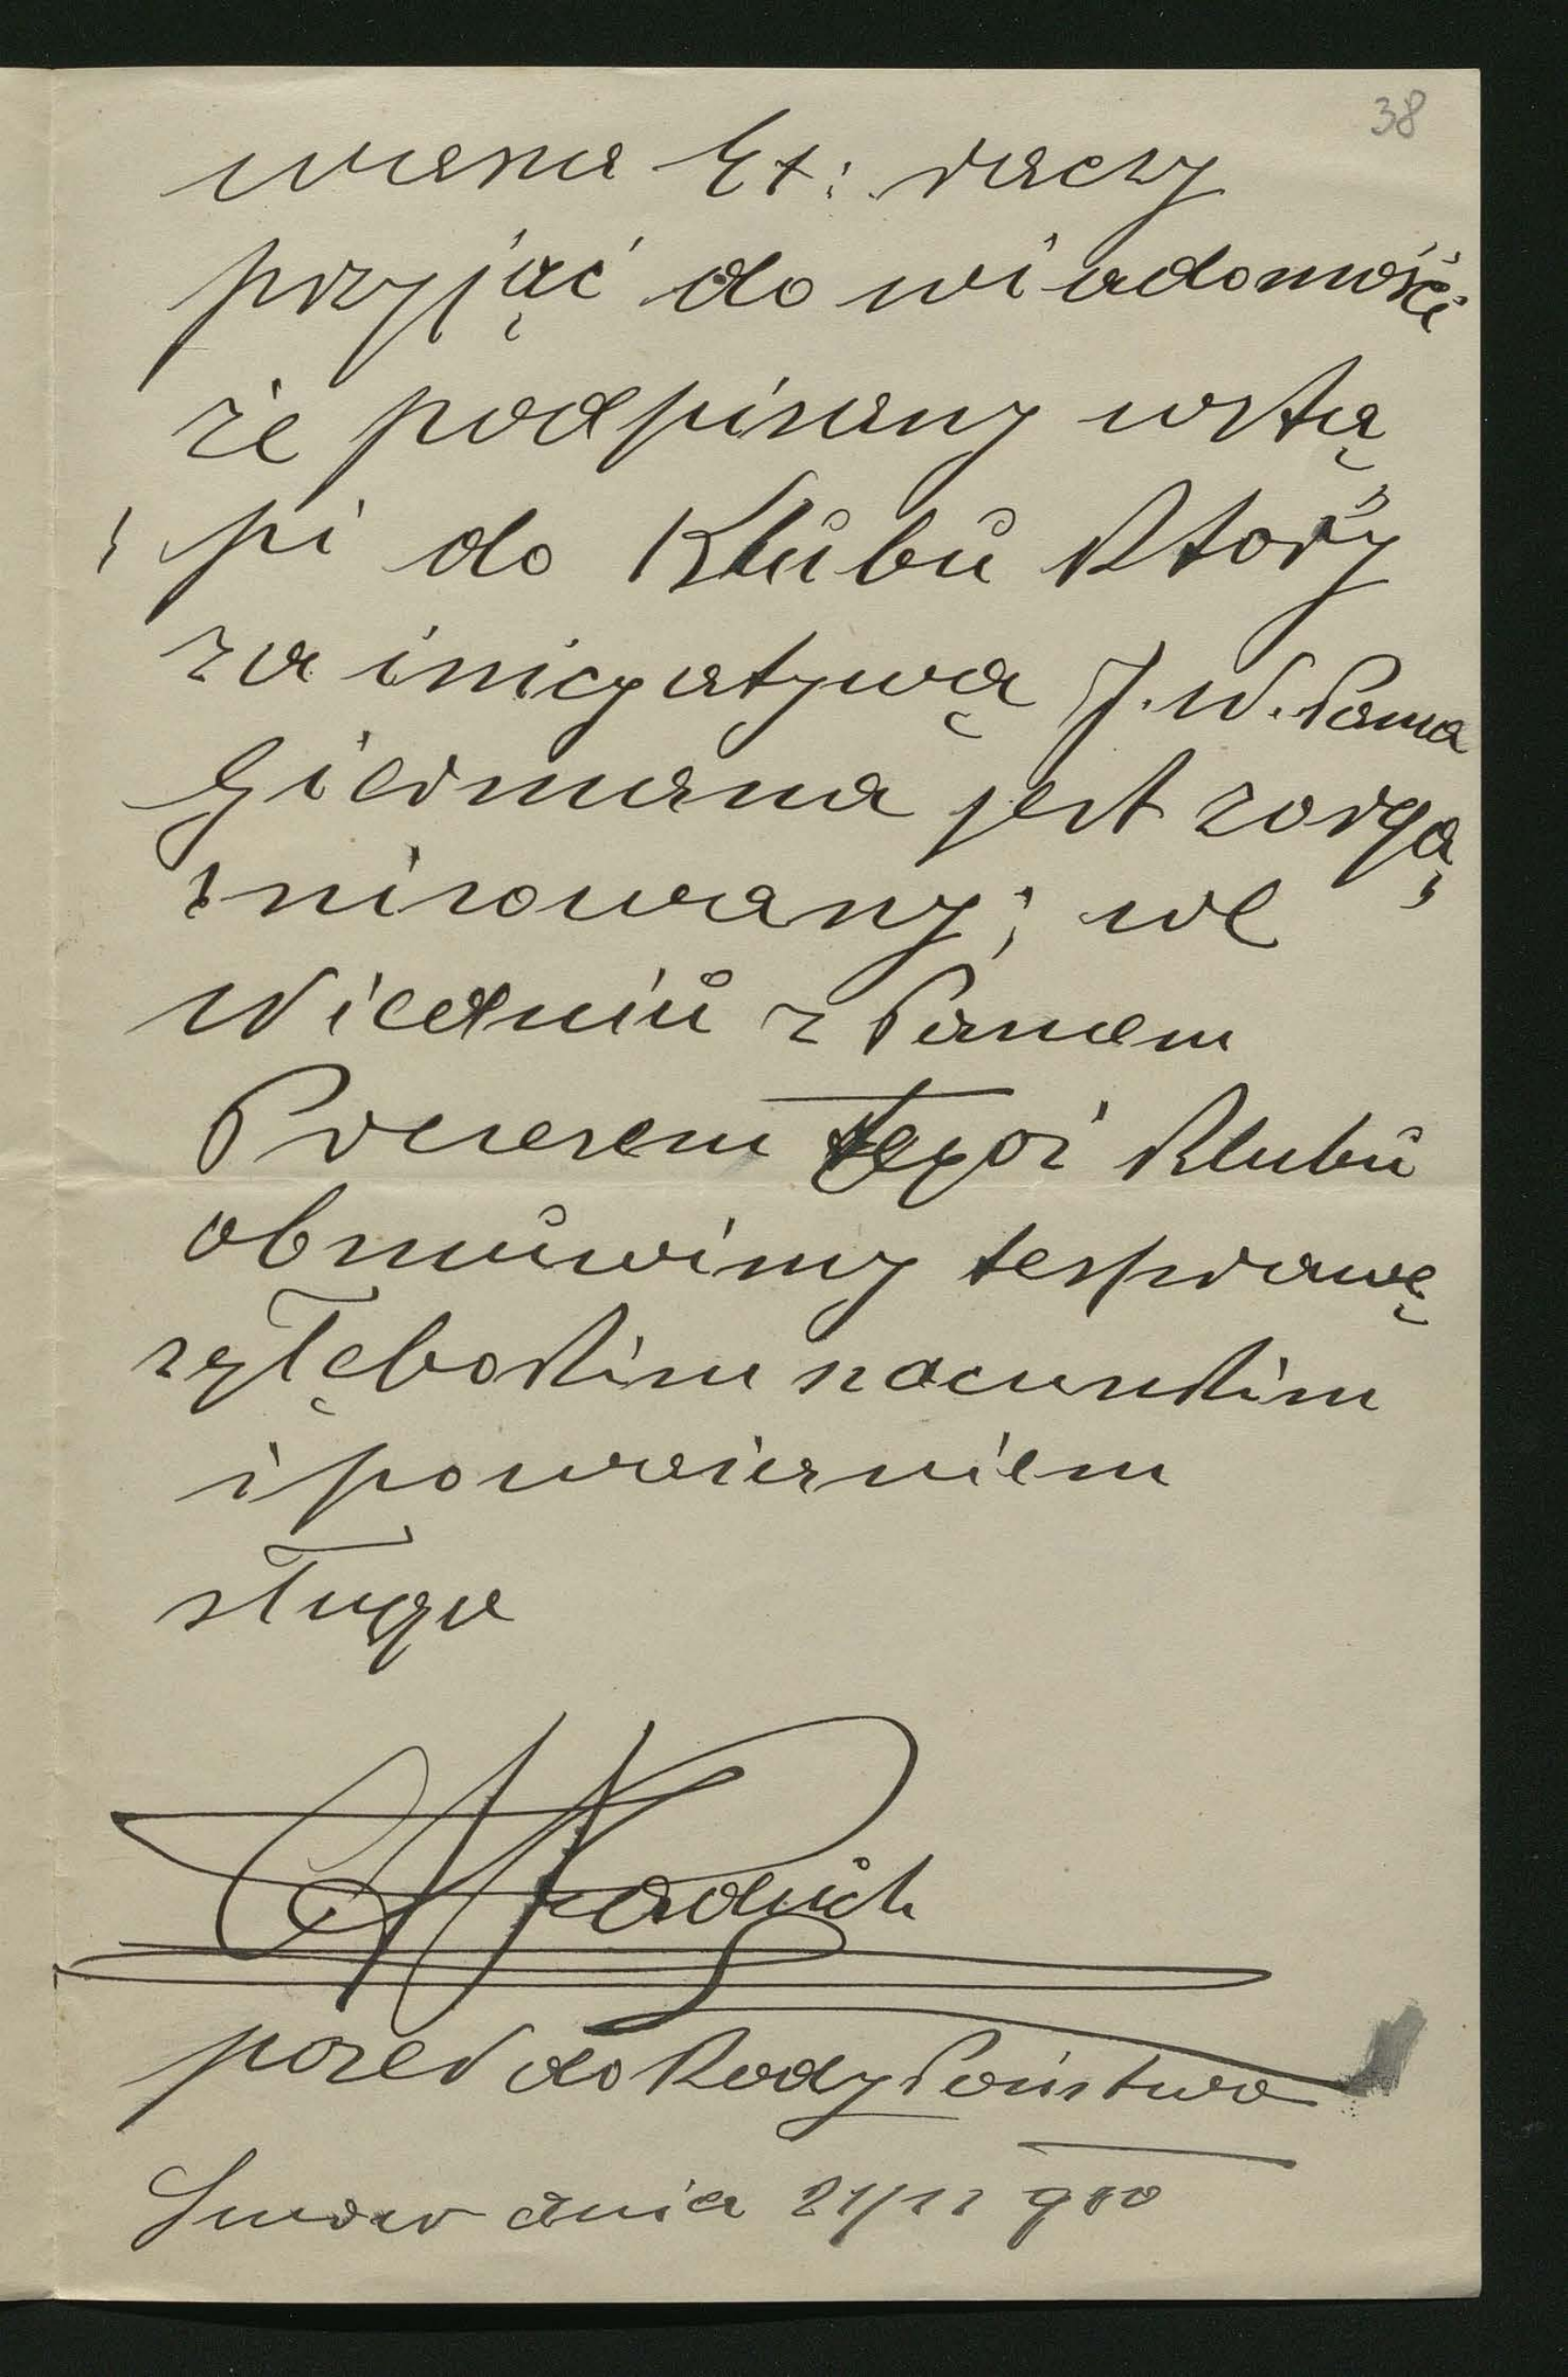 38
wasza Ex: raczy
przyjąć do wiadomości
że podpisany wstą„
„pi do Klubu który
za inicyatywą J. W. Pana
jest zorga„
„nizowany; we
Wiedniu z Panem
Prezesem tegoż klubu
obmówimy te sprawę
z głębokim szacunkim
i poważaniem
sługa
poseł do Rady Państwa
dnia 21/12 900